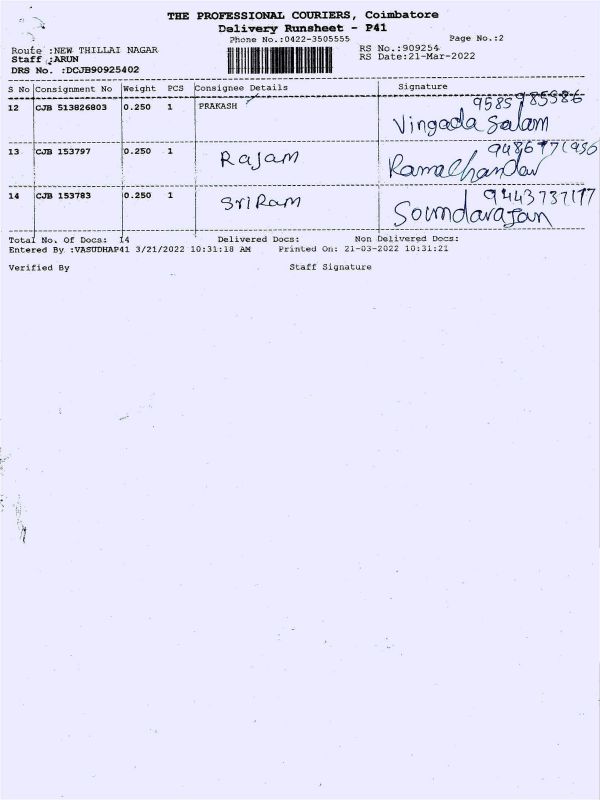 THE PROFESSIONAL COURIERS, Coimbatore
Delivery Runsheet - P41
Phone No.:0422-3505555 Page No.:2
Route :NEW THILLAI NAGAR RS No.:909254
Staff :ARUN RS Date:21-Mar-2022
DRS No. :DCJB90925402
S No Consignment No Weight PCS Consignee Details Signature
12 CJB 513826803 0.250 1 PRAKASH 9585785586
Vingada Salam
13 CJB 153797 0.250 1 Rajam
Ramachandar
14 CJB 153783 0.250 1 SriRam
Soundarajan
Total No. Of Docs: 14 Delivered Docs: Non Delivered Docs:
Entered By :VASUDHAP41 3/21/2022 10:31:18 AM Printed On: 21-03-2022 10:31:21
Verified By Staff Signature